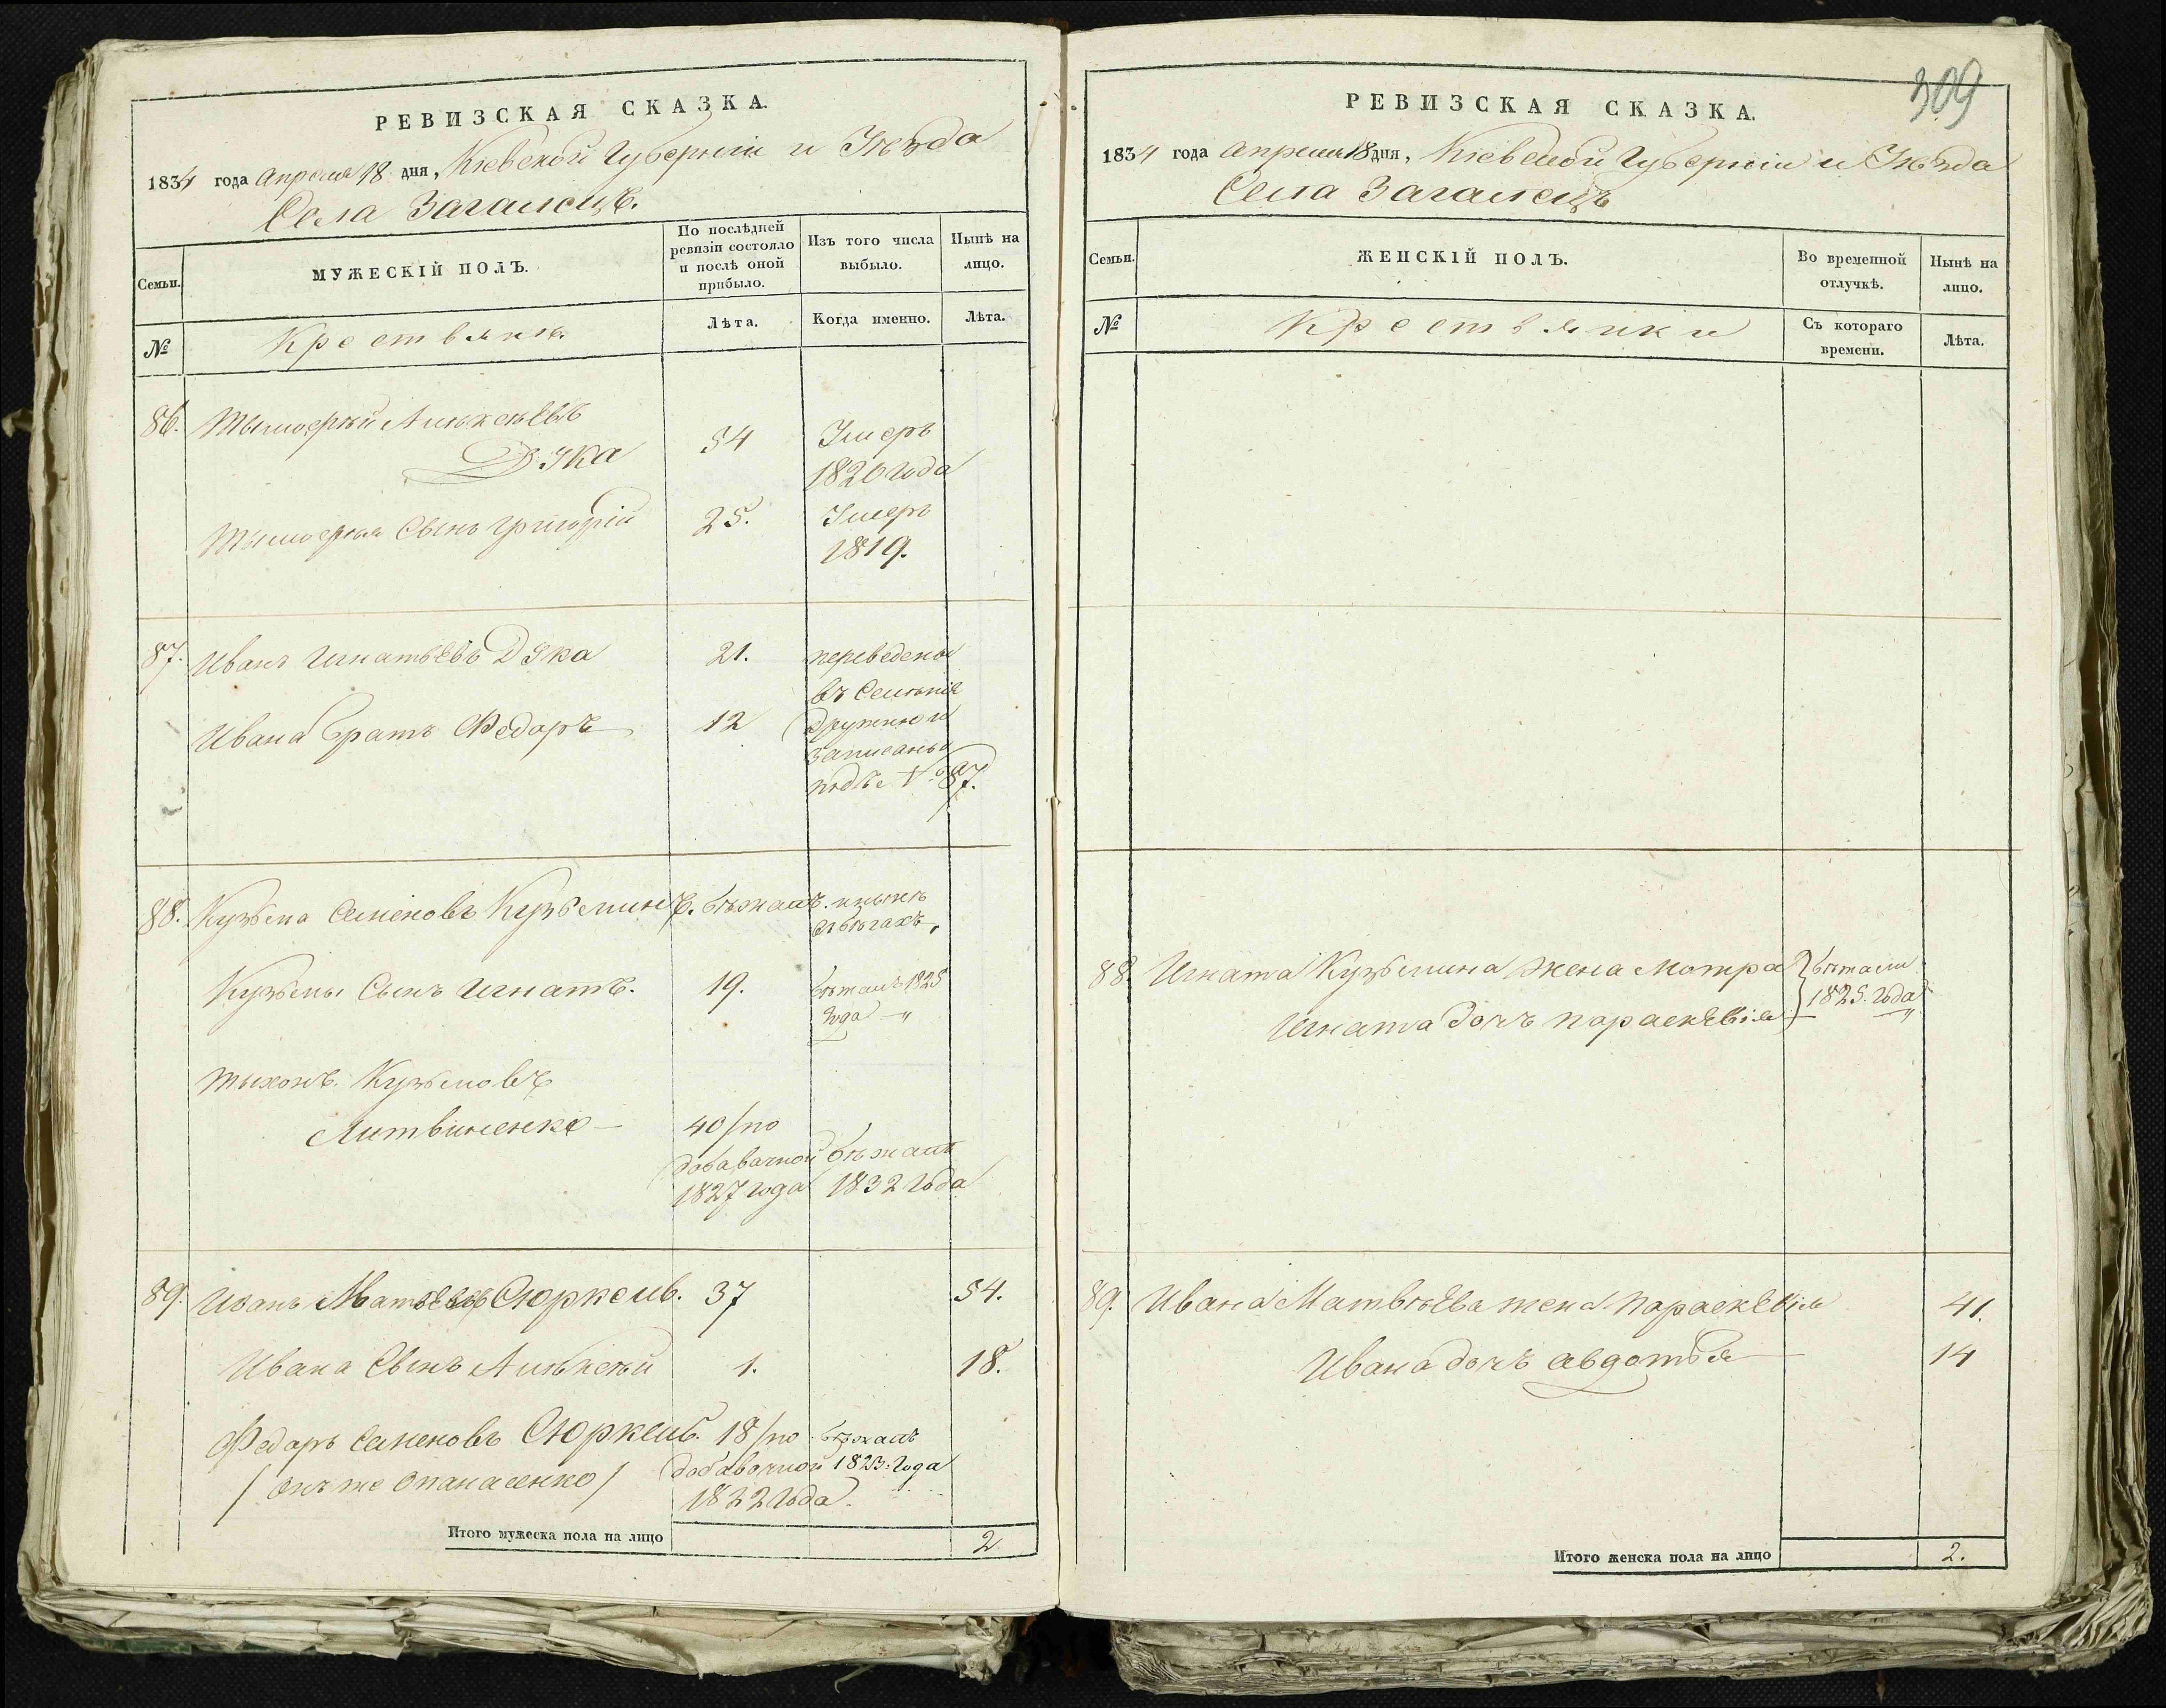 РЕВИЗСКАЯ СКАЗКА.
1834 года апреля 18 дня, Кіевской Губерніи и Уѣзда
Села Загалецъ.
Семьи.
МУЖЕСКІЙ ПОЛЪ.
По послѣдней ревизіи состояло и послѣ оной прибыло.
Изъ того числа выбыло.
Нынѣ на лицо.
№
Крестьяне.
Лѣта.
Когда именно.
Лѣта.
86. Тымофѣй Алѣксѣевъ
Дѣка 54 Умеръ
1820 года
Тымофѣя Сынъ григорій 25. Умеръ
1819.
87. Иванъ Игнатьевъ Дѣка 21. переведены
въ Селѣніе
Ивана братъ Федаръ 12
записаны
подъ № 87.
88. Кузьма Семеновъ Кузьминъ. бѣжалъ. и нынѣ
в бѣгахъ,
Кузьмы Сынъ Игнатъ. 19. бѣжалъ 1825
года "
Тыхонъ. Кузьмовъ
Литвиненко 40 /по
добавочной бѣжалъ
1827 года 1832 года
89. Иванъ Матвѣевъ Сюркелъ. 37 54.
Ивана Сынъ Алѣксѣй 1. 18.
Федаръ Семеновъ Сюркелъ. 18 /по бѣжалъ
/ онъ же Опанасенко / добавочной 1823: года
1822 года.
Итого мужеска пола на лицо 2
309
РЕВИЗСКАЯ СКАЗКА.
1834 года апреля 18 дня, Кіевской Губерніи и Уѣзда
Села Загалецъ
Семьи.
ЖЕНСКІЙ ПОЛЪ.
Во временной отлучкѣ.
Нынѣ на лицо.
№
Крестьянки
Съ котораго времени.
Лѣта.
88. Игната Кузьмина жена Мотра } бѣжали
Игната дочь параскевія 1825. года "
89. Ивана Матвѣева жена параскевія 41.
Ивана дочь авдотья 14
Итого женска пола на лицо 2.